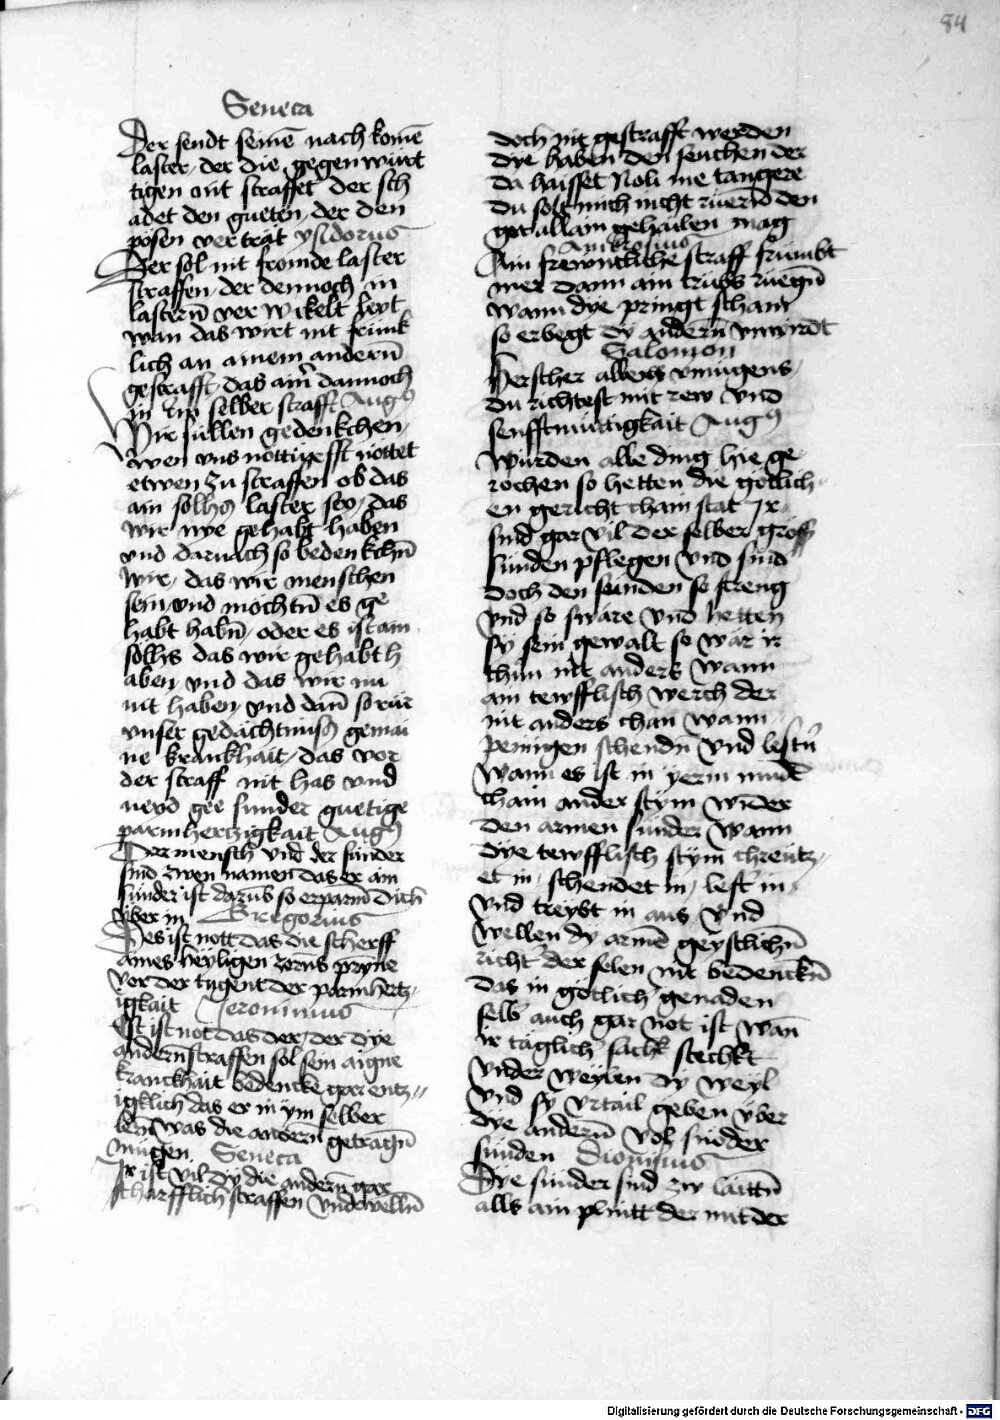 84
Seneca
Der sendt seinē nach komē
laster, der die gegenwürt
tigen nit straffet der sch
adet den gueten, der den
pösen ver trät ysidorus
Der sol nit fromde laster
straffen, der dennoch in
lasterñ ver wikelt leyt
wan das wirt nit frümk
lich an ainem anderñ
gestrafft, das aim dannoch
in im selber strafft Augꝰ
Wir süllen gedenkchen,
wen vns nöttigefft nöttet
etwen zu straffen ob das
ain sollhs laster sey, das
wir nye gehabt haben
vnd darnach so bedenkchñ
wir, das wir menschen
sein, vnd möchtñ es ge
habt habñ, oder es ist ain
söllhs das wir gehabt h
aben, vnd das wir nu
nit haben, vnd dañ so rür
vnser gedächtnüss gemai
ne kranckhait, das vor
der straff nit has vnd
neyd gee sunder guetige
parmhertzigkait Augꝰ
Der mensch vnd der sünder
sind zwen namen das er ain
sünder ist darūb so erparm dich
über in Gregorius
Des ist nott das die scherff
aines heyligen zorns prynne
vor der tugent der parmhertz,,
igkait Jeronimus
Est ist not das der, der dye
anderñ straffen sol sein aigne
kranckhait bedencke gar entz,,
igklich das er in ym selber
lern was die anderñ getragñ
mügen. Seneca
Ir ist vil dy die anderñ gar
scharfflich straffen vnd wellñ
doch nit gestrafft werden
dye haben den seuchen der
da haisset Noli me tangere
du solt mich nicht rüerñ den
got allain gehailen mag
Ambrosius
Ain frewntliche straff frümbt
mer dann ain trübs rüegñ
wann dye pringt scham
so erbegt dy anderñ vnwirdt
Salomon
Herscher alles vmügens,
du richtest mit rew vnd
senfftmüttigkait Augꝰ
Würden alle ding hie ge
rochen so hetten die götlich
en gericht chain stat Ir
sind gar vil der selber gross
sünden pflegen vnd sind
doch den sünden so streng
vnd so swäre vnd hetten
sy sein gewalt so wär ir
thun nit anders wann
ain tewfflisch werch der
nit anders chan wann
peinigen schendñ vnd lestñ
wann es ist in yerm mund
chain ander stym wider
den armen sünder wann
dye tewfflisch stym chreütz,
et in, schendet in, lestͬ in,
vnd treybt in aus, vnd
wellen dy armē geystlichñ
richtͬ der selen nit bedenckñ
das in götlichͬ genaden
selbͬ auch gar not ist wañ
ir täglichͬ sachͬ stechkt
vnder weylen dy weyl
vnd sy vrtail geben über
dye anderñ vol süoder
sünden Dionisius
Dye sünder sind zw läittñ
alls ain plintt der mit der
Digitalisierung gefördert durch die Deutsche Forschungsgemeinschaft - DFG